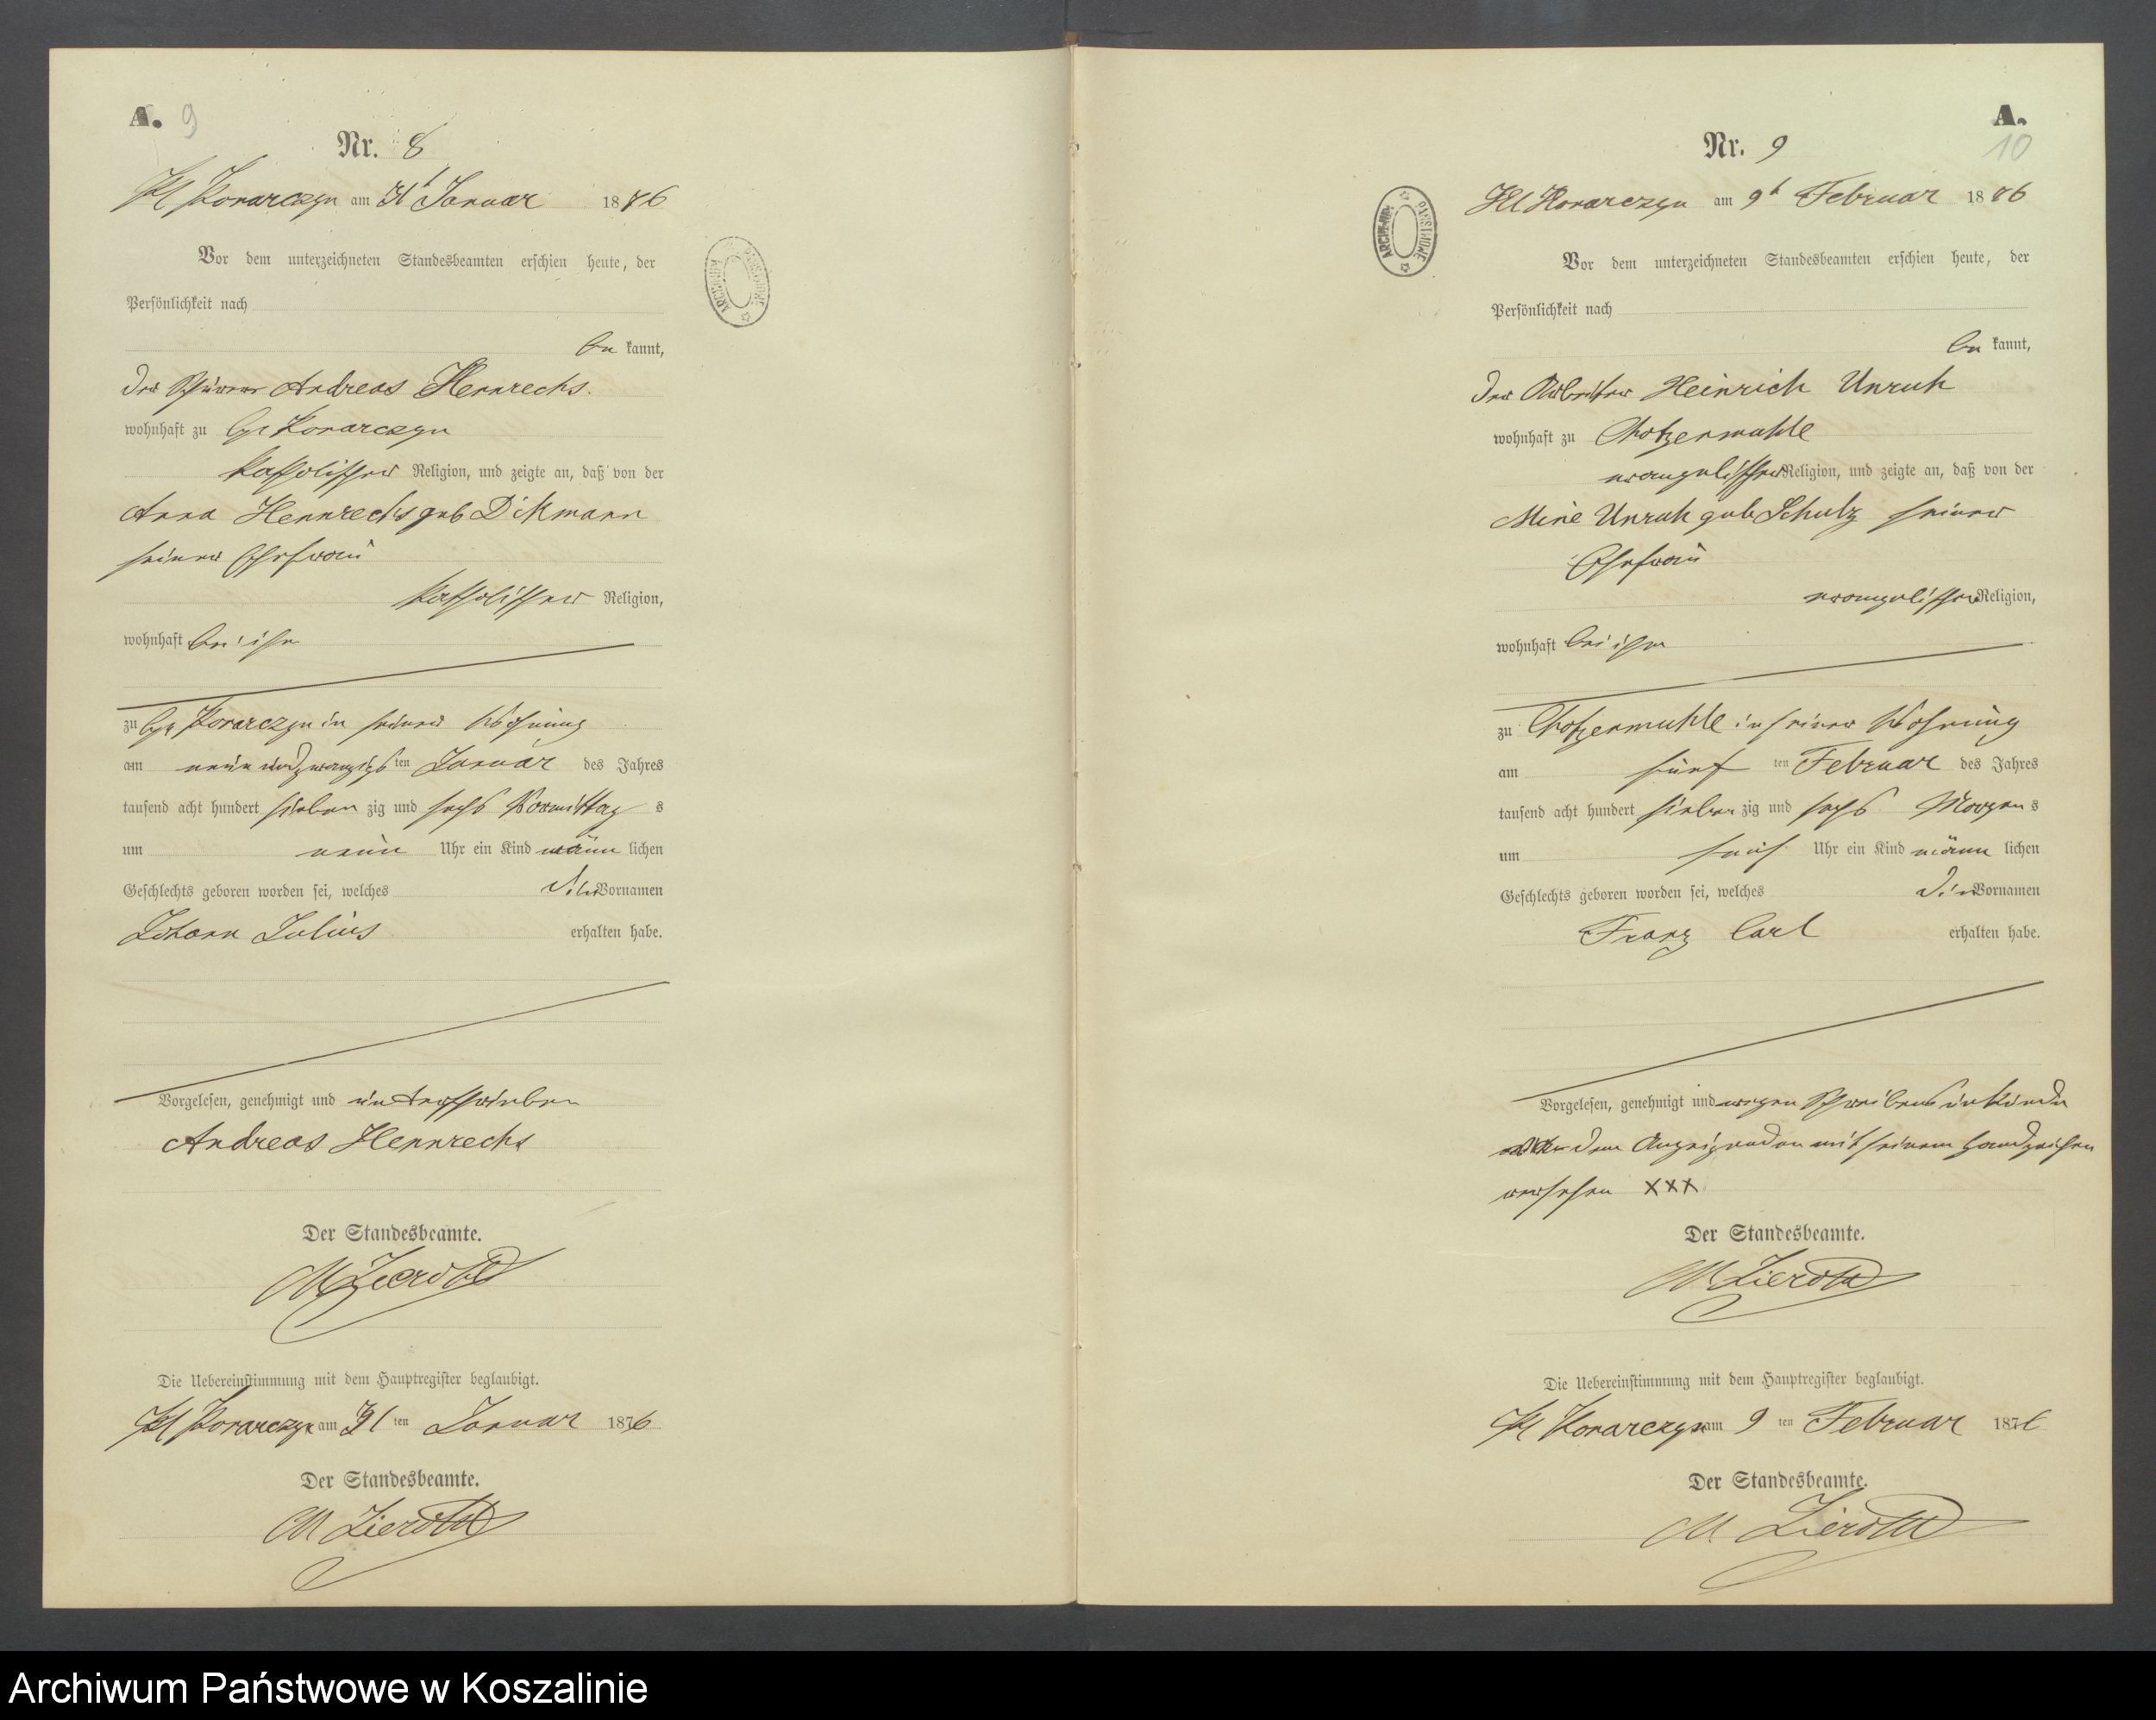 A. 9
Nr. 8
Kl Konarczyn am 31t Januar 1876
Vor dem unterzeichneten Standesbeamten erschien heute, der
Persönlichkeit nach
be kannt,
der Andreas Hennrechs.
wohnhaft zu Gr Konarczyn
katholischer Religion, und zeigte an, daß von der
Anna Hennrechs geb Dikmann
seiner Ehefrau
katholischer Religion,
wohnhaft bei ihm
zu Gr Konarczyn in seiner Wohnung
am neun und zwanzigs ten Januar des Jahres
tausend acht hundert sieben zig und sechs Vormittag s
um neun Uhr ein Kind männ lichen
Geschlechts geboren worden sei, welches die Vornamen
Johann Julius erhalten habe.
Vorgelesen, genehmigt und unterschrieben
Andreas Hennrechs
Der Standesbeamte.
M Zieroth
Die Uebereinstimmung mit dem Hauptregister beglaubigt.
Kl Konarczyn am 31 ten Januar 1876
Der Standesbeamte.
M Zieroth
ARCHIWUM PAŃSTWOWE
A.
10
Nr. 9
Kl Konarczyn am 9t Februar 1876
Vor dem unterzeichneten Standesbeamten erschien heute, der
Persönlichkeit nach
be kannt,
der Arbeiter Heinrich Unruh
wohnhaft zu Chotzenmuhle
evangelischer Religion, und zeigte an, daß von der
Mine Unruh geb Schulz seiner
Ehefrau
evangelischer Religion,
wohnhaft bei ihm
zu Chotzenmuhle in seiner Wohnung
am fünf ten Februar des Jahres
tausend acht hundert sieben zig und sechs Morgen s
um fünf Uhr ein Kind männ lichen
Geschlechts geboren worden sei, welches die Vornamen
Franz Carl erhalten habe.
Vorgelesen, genehmigt und wegen Schreibensunkunde
von dem Anzeigenden mit seinem Handzeichen
versehen XXX
Der Standesbeamte.
M Zieroth
Die Uebereinstimmung mit dem Hauptregister beglaubigt.
Kl Konarczyn am 9 ten Februar 1876
Der Standesbeamte.
M Zieroth
ARCHIWUM PAŃSTWOWE
Archiwum Państwowe w Koszalinie